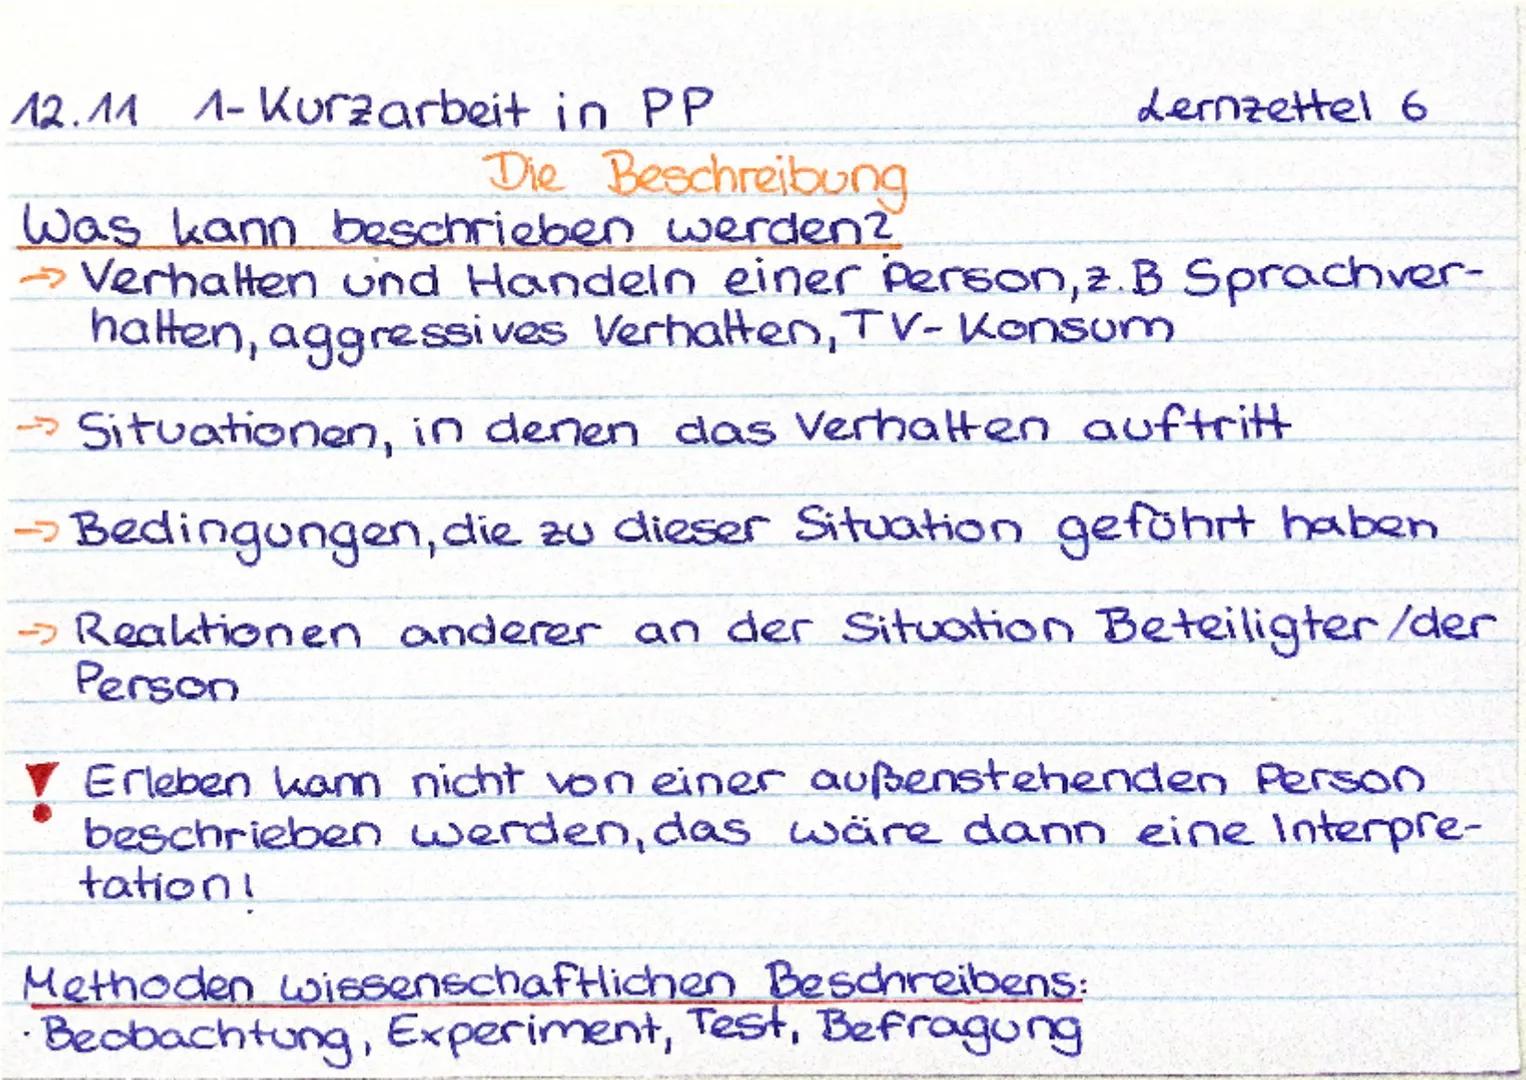 12.11 1-Kurzarbeit in PP Lernzettel 6
Die Beschreibung
Was kann beschrieben werden?
→ Verhalten und Handeln einer Person, z.B Sprachver-
halten, aggressives Verhalten, TV-Konsum
→ Situationen, in denen das Verhalten auftritt
→ Bedingungen, die zu dieser Situation geführt haben
→ Reaktionen anderer an der Situation Beteiligter/der
Person
! Erleben kann nicht von einer außenstehenden Person
beschrieben werden, das wäre dann eine Interpre-
tation!
Methoden wissenschaftlichen Beschreibens:
· Beobachtung, Experiment, Test, Befragung